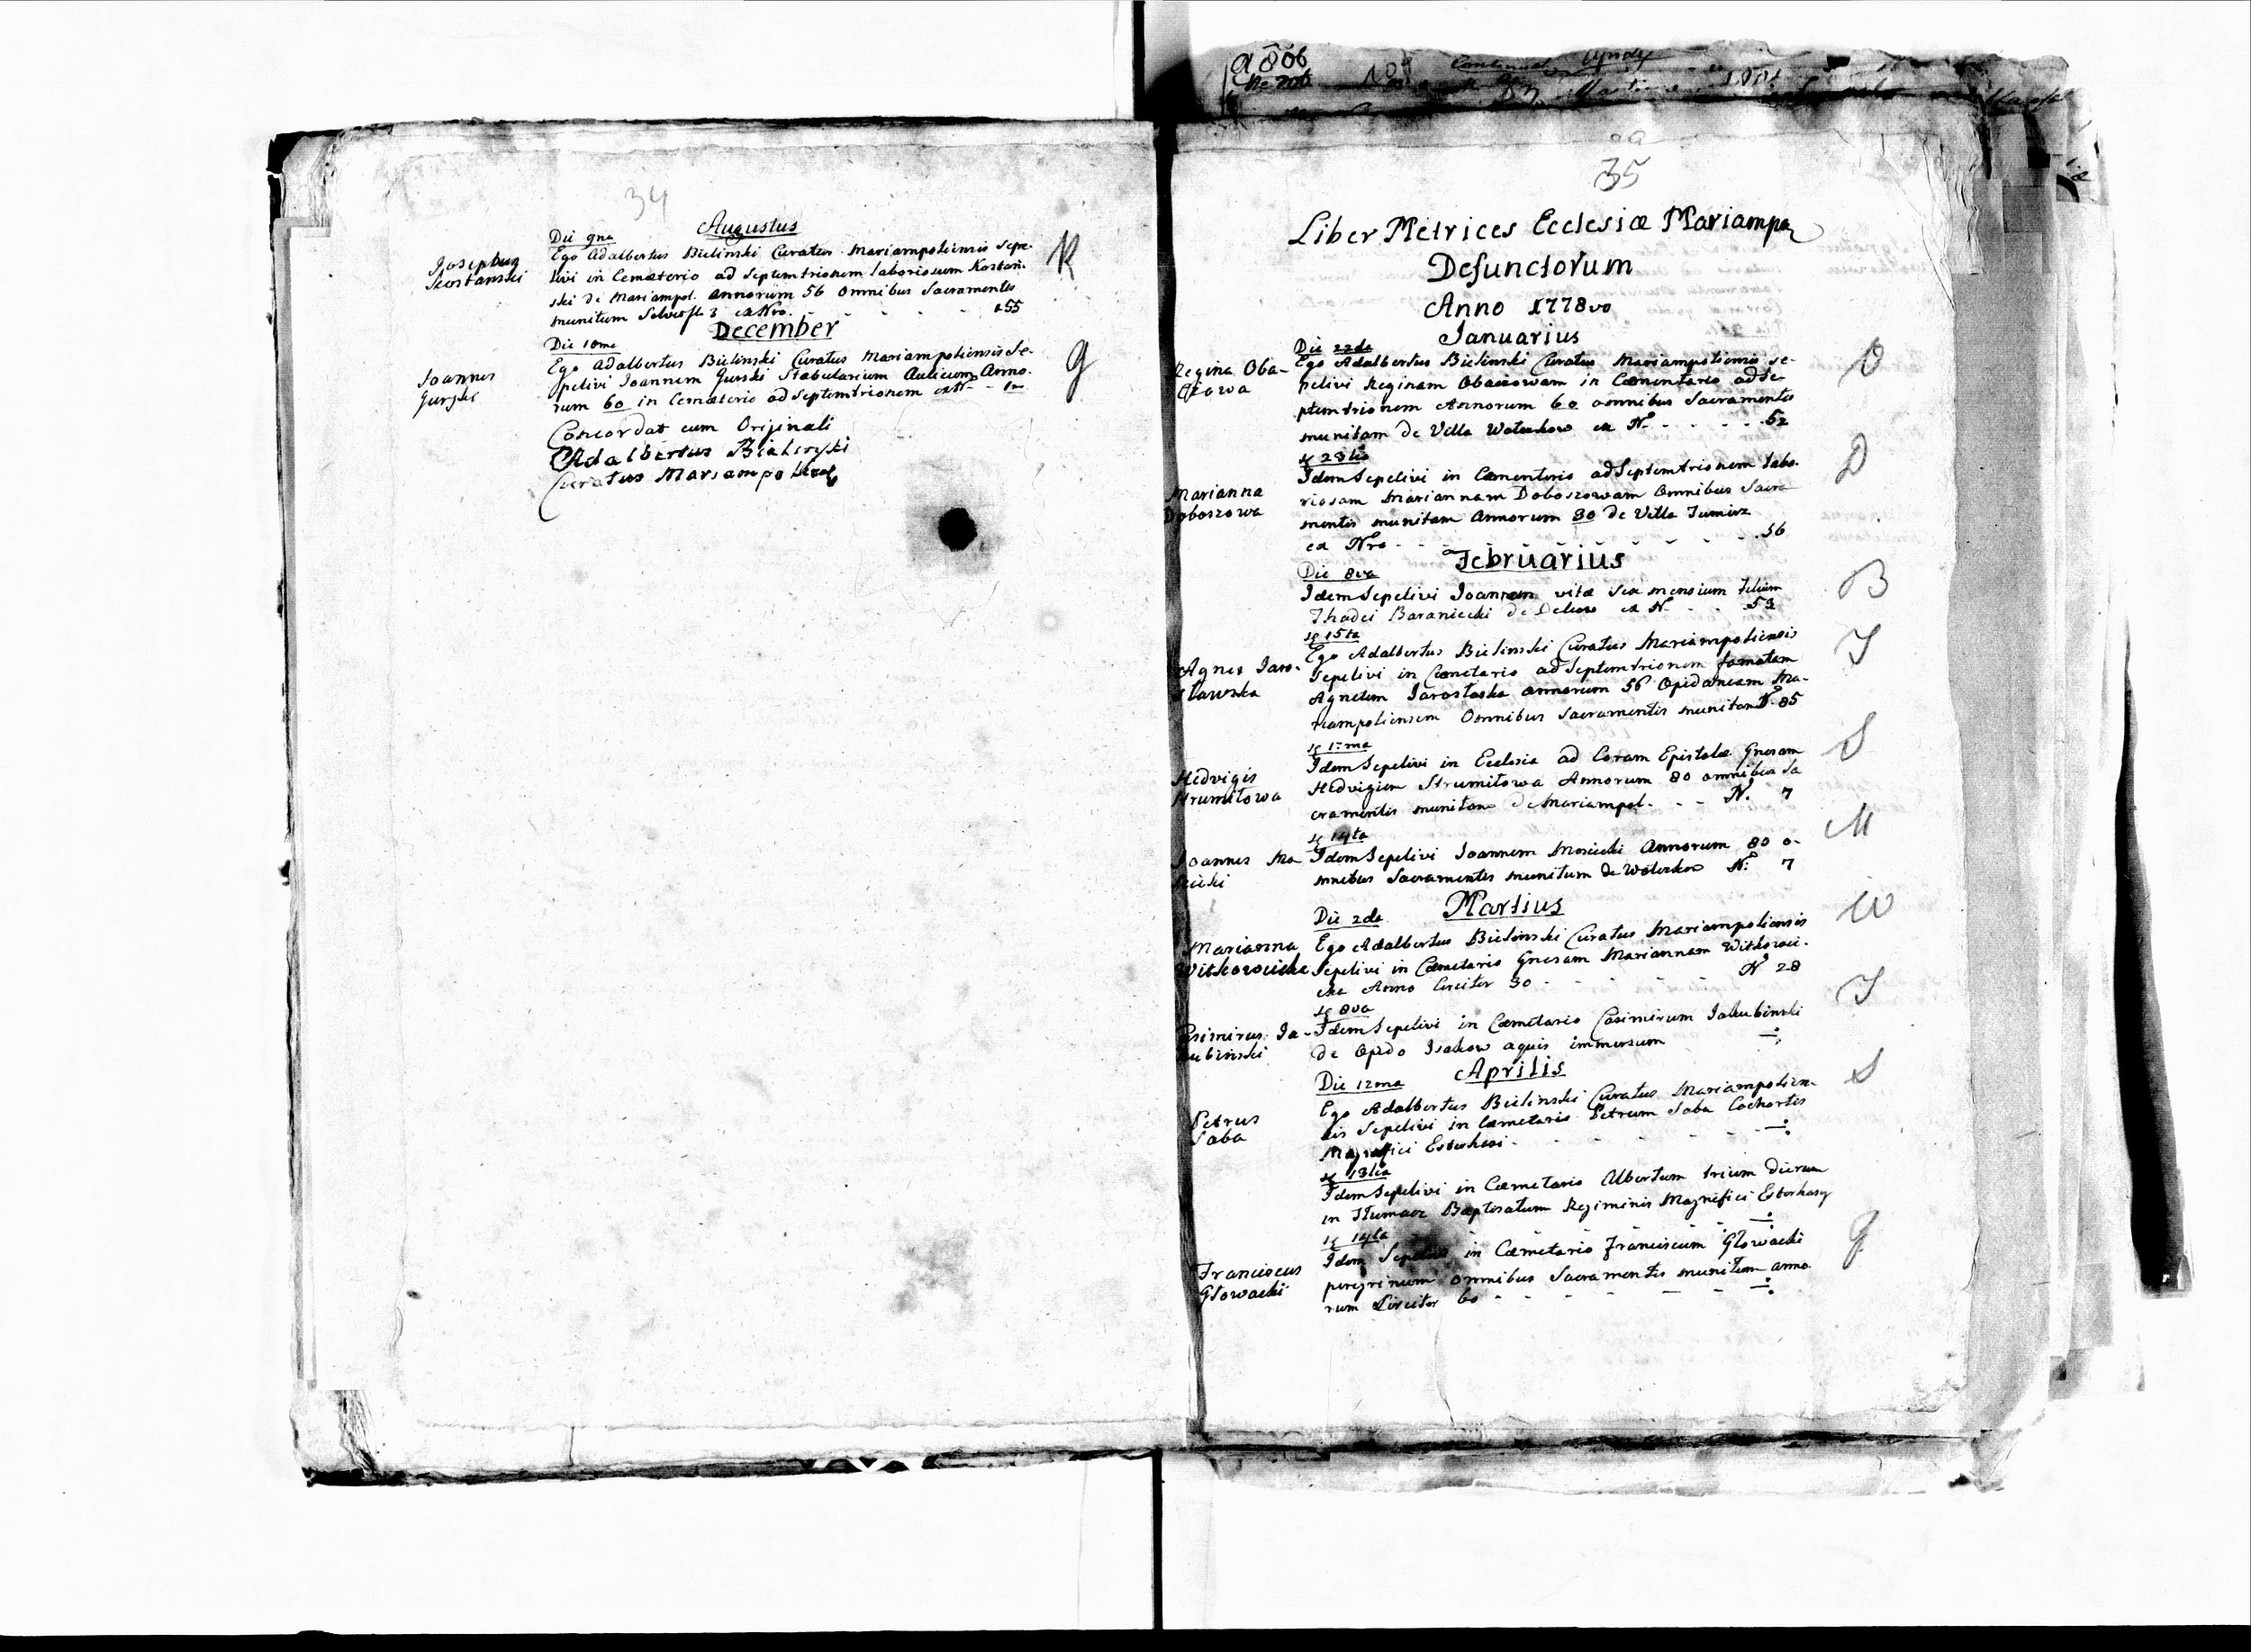 34
Augustus
Die 9na
Josephus
Kostanski
Ego Adalbertus Bielinski Curatus Mariampoliensis Sepe-
livi in Cemæterio ad Septemtrionem laboriosum Kostań-
ski de Mariampol. annorum 56 omnibus Sacramentis
munitum ex Nro. - - - - 55
K
December
Die 10ma
Joannes
Gurski
Ego Adalbertus Bielinski Curatus Mariampoliensis Se-
pelivi Joannem Gurski Stabularium Aulicum Anno-
rum 60 in Cemæterio ad Septemtrionem ex N
G
Concordat cum Originali
Adalbertus Bielinski
Curatus
a 806
35
Liber Metrices Ecclesiæ Mariampo
Defunctorum
Anno 1778vo
Januarius
Die 22da
Regina Oba-
Ego Adalbertus Bielinski Curatus Mariampoliensis se-
pelivi Reginam in Cæmentario ad Se-
ptemtrionem Annorum 60 omnibus Sacramentis
munitam de Villa Wolczkow ex N - - - - 52
O
Marianna
Doboszowa
Idem Sepelivi in Cæmenterio ad Septemtrionem labo-
riosam Mariannam Doboszowam Omnibus Sacra
mentis munitam Annorum 30 de Villa
ex Nro - - - - 56
D
Februarius
Die 8va
Idem Sepelivi Joannem vitæ sex mensium filium
Thadei Baraniecki de ex N. - - 53
B
15ta
Agnes Jaro-
sławska
Ego Adalbertus Bielinski Curatus Mariampoliensis
Sepelivi in Cæmetario ad Septemtrionem famatam
Agnetem Jarosłaska annorum 56 Opidaneam Ma-
riampoliensem Omnibus Sacramentis munitam N. 85
J
Hedvigis
Strumiłowa
Idem Sepelivi in Ecclesia ad Coram Epistolæ Gnosam
Hedvigim Strumiłowa Annorum 80 omnibus Sa
cramentis munitam de Mariampol. - - N. 7
S
14ta
Joannes Mo-
Idem Sepelivi Joannem Annorum 80 o-
mnibus Sacramentis munitum de N. 7
M
Martius
Die 2da
Marianna
Witkowicka
Ego Adalbertus Bielinski Curatus Mariampoliensis
Sepelivi in Cæmetario Gnosam Mariannam Witkowi-
cka Anno Circiter 30 - - N 28
W
8va
Casimirus Ja-
kubinski
Idem Sepelivi in Cæmetario Casimirum Jakubinski
de Opido aquis immersum
J
Aprilis
Die 12ma
Petrus
Saba
Ego Adalbertus Bielinski Curatus Mariampolien-
sis Sepelivi in Cæmetario Petrum Saba Cochortis
Magnifici Esterhasi - - - -
S
13tia
Idem Sepelivi in Cæmetario Albertum trium Dierum
in Baptisatum Regiminis Magnifici Esterhasy
14ta
Franciscus
Głowacki
Idem Sepelivi in Cæmetario Franciscum Głowacki
peregrinum omnibus Sacramentis munitum anno
rum Circiter 60 - - - -
G